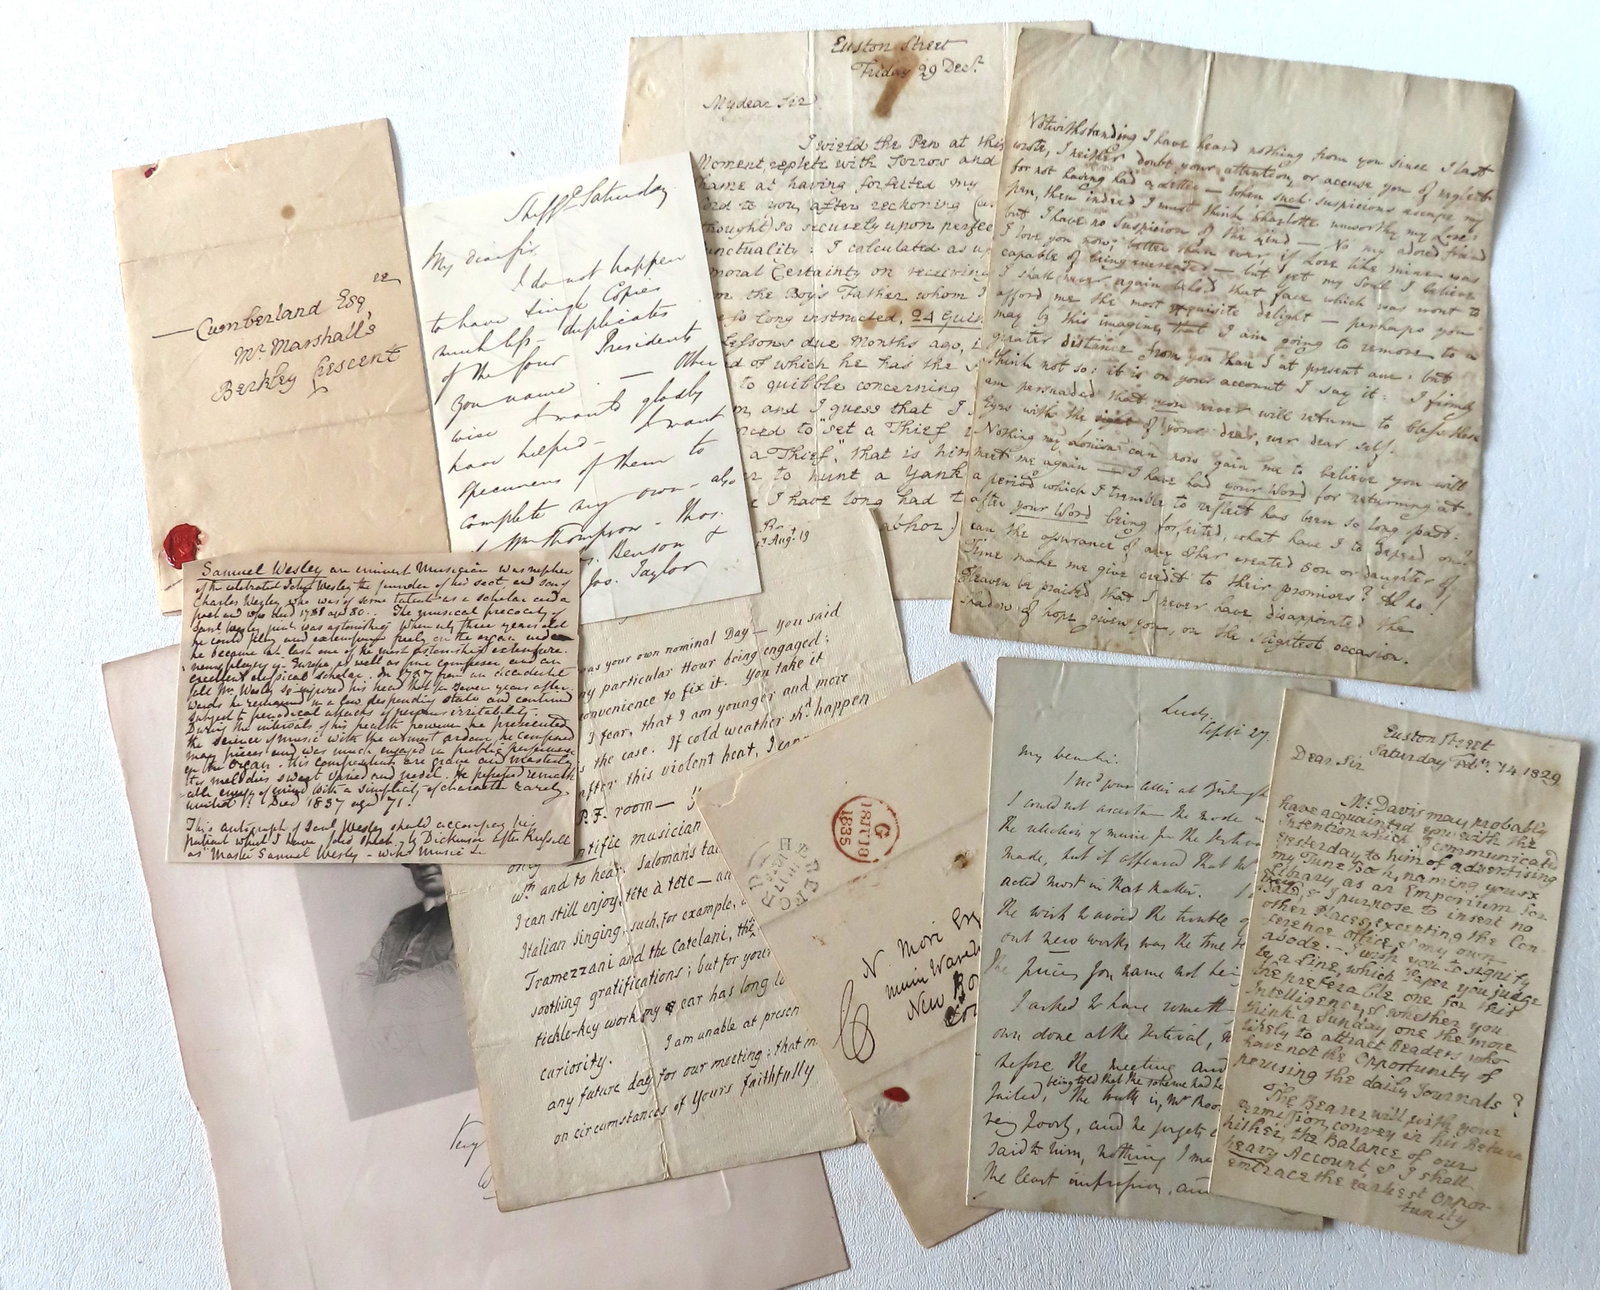 Cumberland Esq
Mr. Marshall's
Berkley Crescent
Sheffd. Saturday
My dear Sir
I do not happen
to have single Copies
much less duplicates
of the four Presidents
You name. — Other
wise I would gladly
have helped — I want
specimens of them to
complete my own — also
Wm Thompson — Thos.
Benson &
Jos. Taylor
Euston Street
Friday 29 Decr.
My dear Sir
I wield the Pen at this
Moment, replete with Sorrow and
shame at having forfeited my
word to you, after reckoning (as
thought) so securely upon perfect
punctuality: I calculated as up
moral Certainty on receiving
the Boy's Father whom I
so long instructed, 24 Guin
Lessons due Months ago,
of which he has the
to quibble concerning
and I guess that I
to "set a Thief
a Thief", that is him
to hunt a Yank
I have long had
abhor)
Aug. 19
Notwithstanding I have heard nothing from you since I last
wrote, I neither doubt your attention, or accuse you of neglect
for not having had a letter — when such suspicions escape my
pen, then indeed I must think Charlotte unworthy my Love:
but I have no suspicion of the kind — No my adored friend
I love you now, better than ever if Love like mine was
capable of being increased — but yet my Soul I believe
I shall never again behold that face which was wont to
afford me the most exquisite delight — perhaps you
may by this imagine, that I am going to remove to a
greater distance from you than I at present am: but
think not so: it is on your account I say it: I firmly
am persuaded that you never will return to bless these
Eyes with the sight of your dear, ever dear self.
Nothing my admired can now gain me to believe you will
meet me again — I have had your Word for returning at
a period which I tremble to reflect has been so long past:
after your Word being forfeited, what have I to depend on?
can the assurance of any other created Son or daughter of
Time make me give credit to their promises? Ah no!
Heaven be praised that I never have disappointed the
shadow of hope given you, on the slightest occasion.
Samuel Wesley an eminent Musician was nephew
of the celebrated John Wesley the founder of his sect and son of
Charles Wesley who was of some talent as a scholar and a
poet and who died 1788 aged 80. The musical precocity of
Saml Wesley junr was astonishing. When only three years old
he could play and extemporise freely on the organ and
he became at last one of the most astonishing extempore
players in Europe as well as fine composer and an
excellent classical scholar. In 1787 from an accidental
fall Mr Wesley so injured his head that for seven years after
wards he remained in a low desponding state and continued
subject to periodical attacks of nervous irritability.
During the intervals of his health however he prosecuted
the science of music with the utmost ardour, he composed
many pieces and was much engaged in public performance
on the Organ. His compositions are grave and masterly
his melodies sweet varied and novel. He possessed remark
able energy of mind with a simplicity of character rarely
united. Died 1837 aged 71!
This autograph of Saml Wesley should accompany his
portrait which I have, folio, by Dickinson after Russell
as "Master Samuel Wesley" — with Music &
was your own nominal Day — you said
any particular Hour being engaged;
convenience to fix it. You take it
I fear, that I am younger and more
the case. If cold weather shd. happen
after this violent heat, I can
P.F. room —
scientific musician
wth. and to hear Salomon's
I can still enjoy, tête à tête — an
Italian singing, such, for example,
Tramezzani and the Catelani, the
soothing gratifications; but for your
tickle-key work my ear has long
curiosity.
I am unable at presen
any future day for our meeting; that
on circumstances of Yours faithfully
Very
HEREFORD
G
18 1835
N. Mori Esq
Music Ware
New Bo
Leeds
Sept. 27
My dear Sir.
I recd. your letter at Edinburgh
I could not ascertain the mode
the selection of music for the Festiva
made, but it appeared that Mr
acted most in that matter. I
the wish to avoid the trouble of
out new works, was the true
the pieces you name not being
I asked to have something
own done at the Festival,
before the meeting and
failed, being told that the scheme had be
The truth is, Mr
very poorly, and he forgets
said to him, nothing I
the least impression, and
Euston Street
Saturday Feby. 14. 1829
Dear Sir
Mr. Davis may probably
have acquainted you with the
Intention which I communicated
yesterday to him of advertising
my Tune Book, naming yours
Library as an Emporium for
Sale; & I purpose to insert no
other Places, excepting the Con-
ference office, & my own
abode. — I wish you to signify
by a Line, which Paper you judge
the preferable one for this
Intelligence, & whether you
think a Sunday one the more
likely to attract Readers who
have not the Opportunity of
perusing the daily Journals?
The Bearer will with your
permission, convey in his Return
hither, the Balance of our
heavy Account, & I shall
embrace the earliest Oppor-
tunity